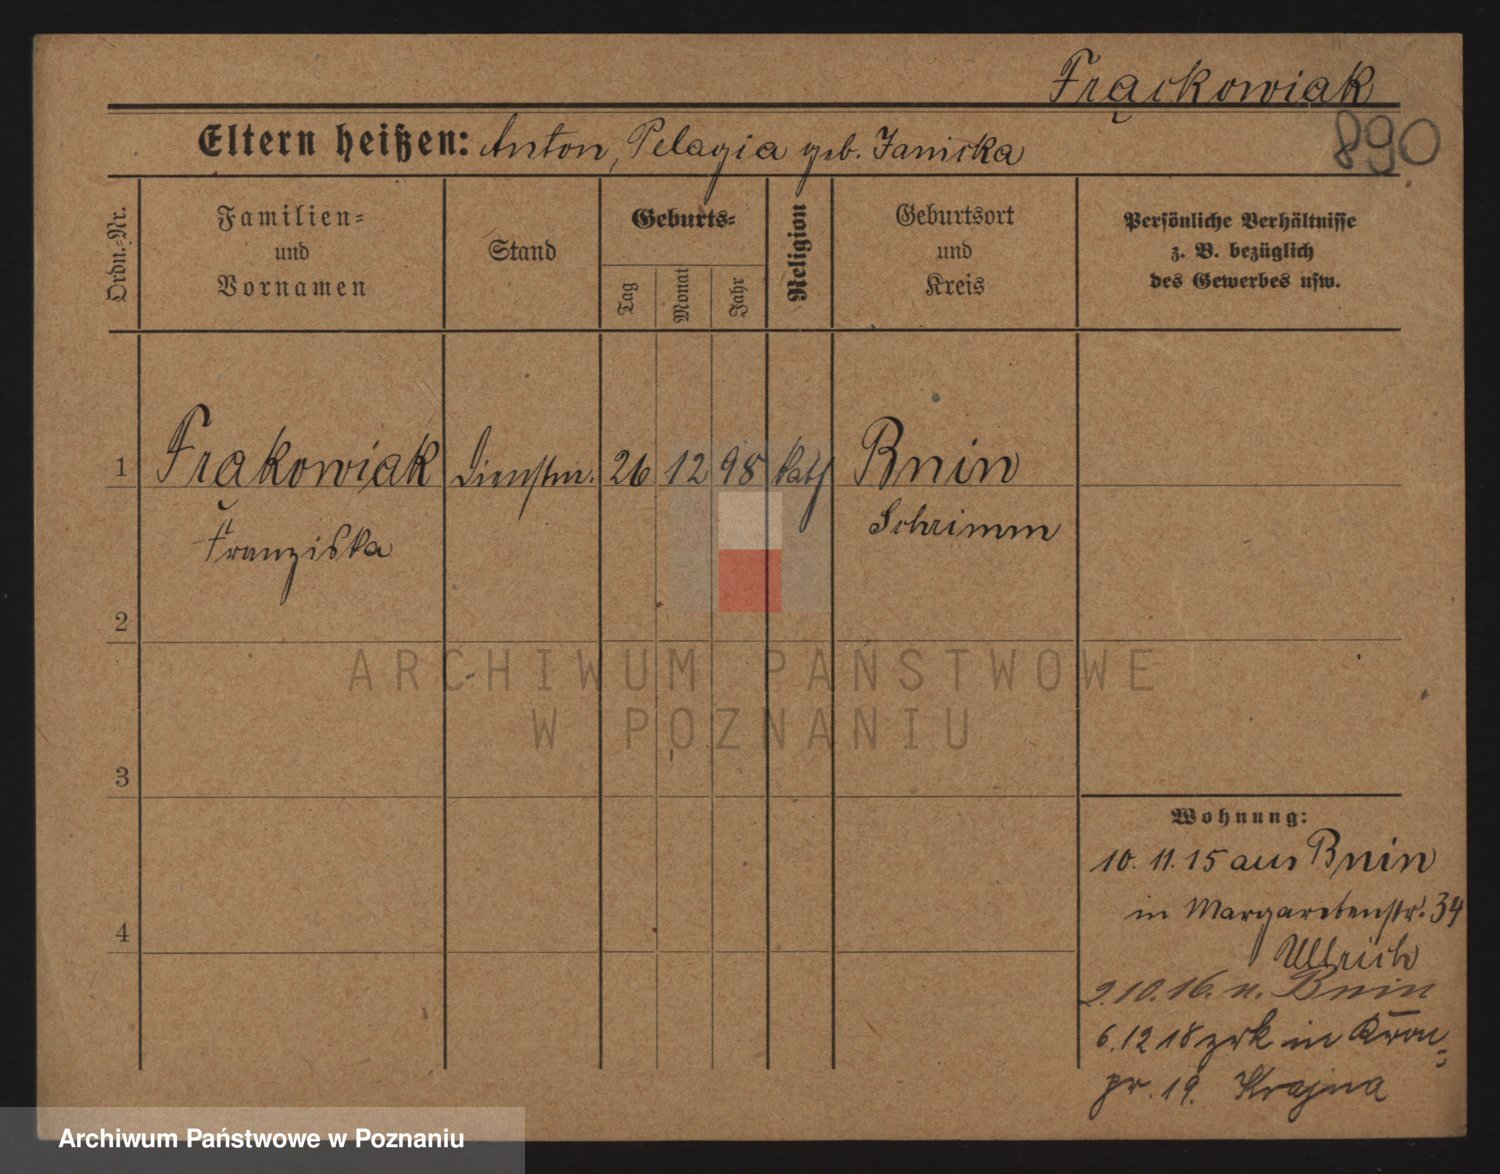 Frąckowiak
Eltern heißen: Anton, Pelagia geb. Janicka
890
Ordn.-Nr.
Familien-
und
Vornamen
Stand
Geburts-
Tag
Monat
Jahr
Religion
Geburtsort
und
Kreis
Persönliche Verhältnisse
z. B. bezüglich
des Gewerbes usw.
1 Frąkowiak Dienstm. 26 12 98 kath Bnin
Franziska Schrimm
2
3
4
Wohnung:
10. 11. 15 aus Bnin
in Margaretenstr. 34
Ullrich
2.10.16. n. Bnin
6.12 18 zrk in Kron-
pr. 19. Krajna
ARCHIWUM PAŃSTWOWE
W POZNANIU
Archiwum Państwowe w Poznaniu